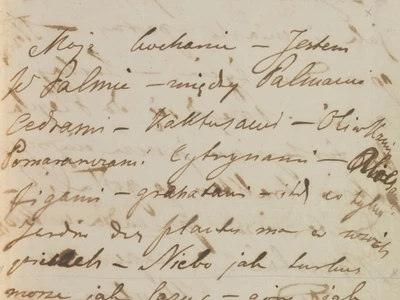 Moje kochanie – Jestem
w Palmie – między Palmami
Cedrami – Kaktusami – Oliwkami
Pomarańczami Cytrynami –
– figami – granatami – itd co tylko
Jardin des plantes ma w swoich
piecach – Niebo jak turkus
morze jak lazur – góry jak